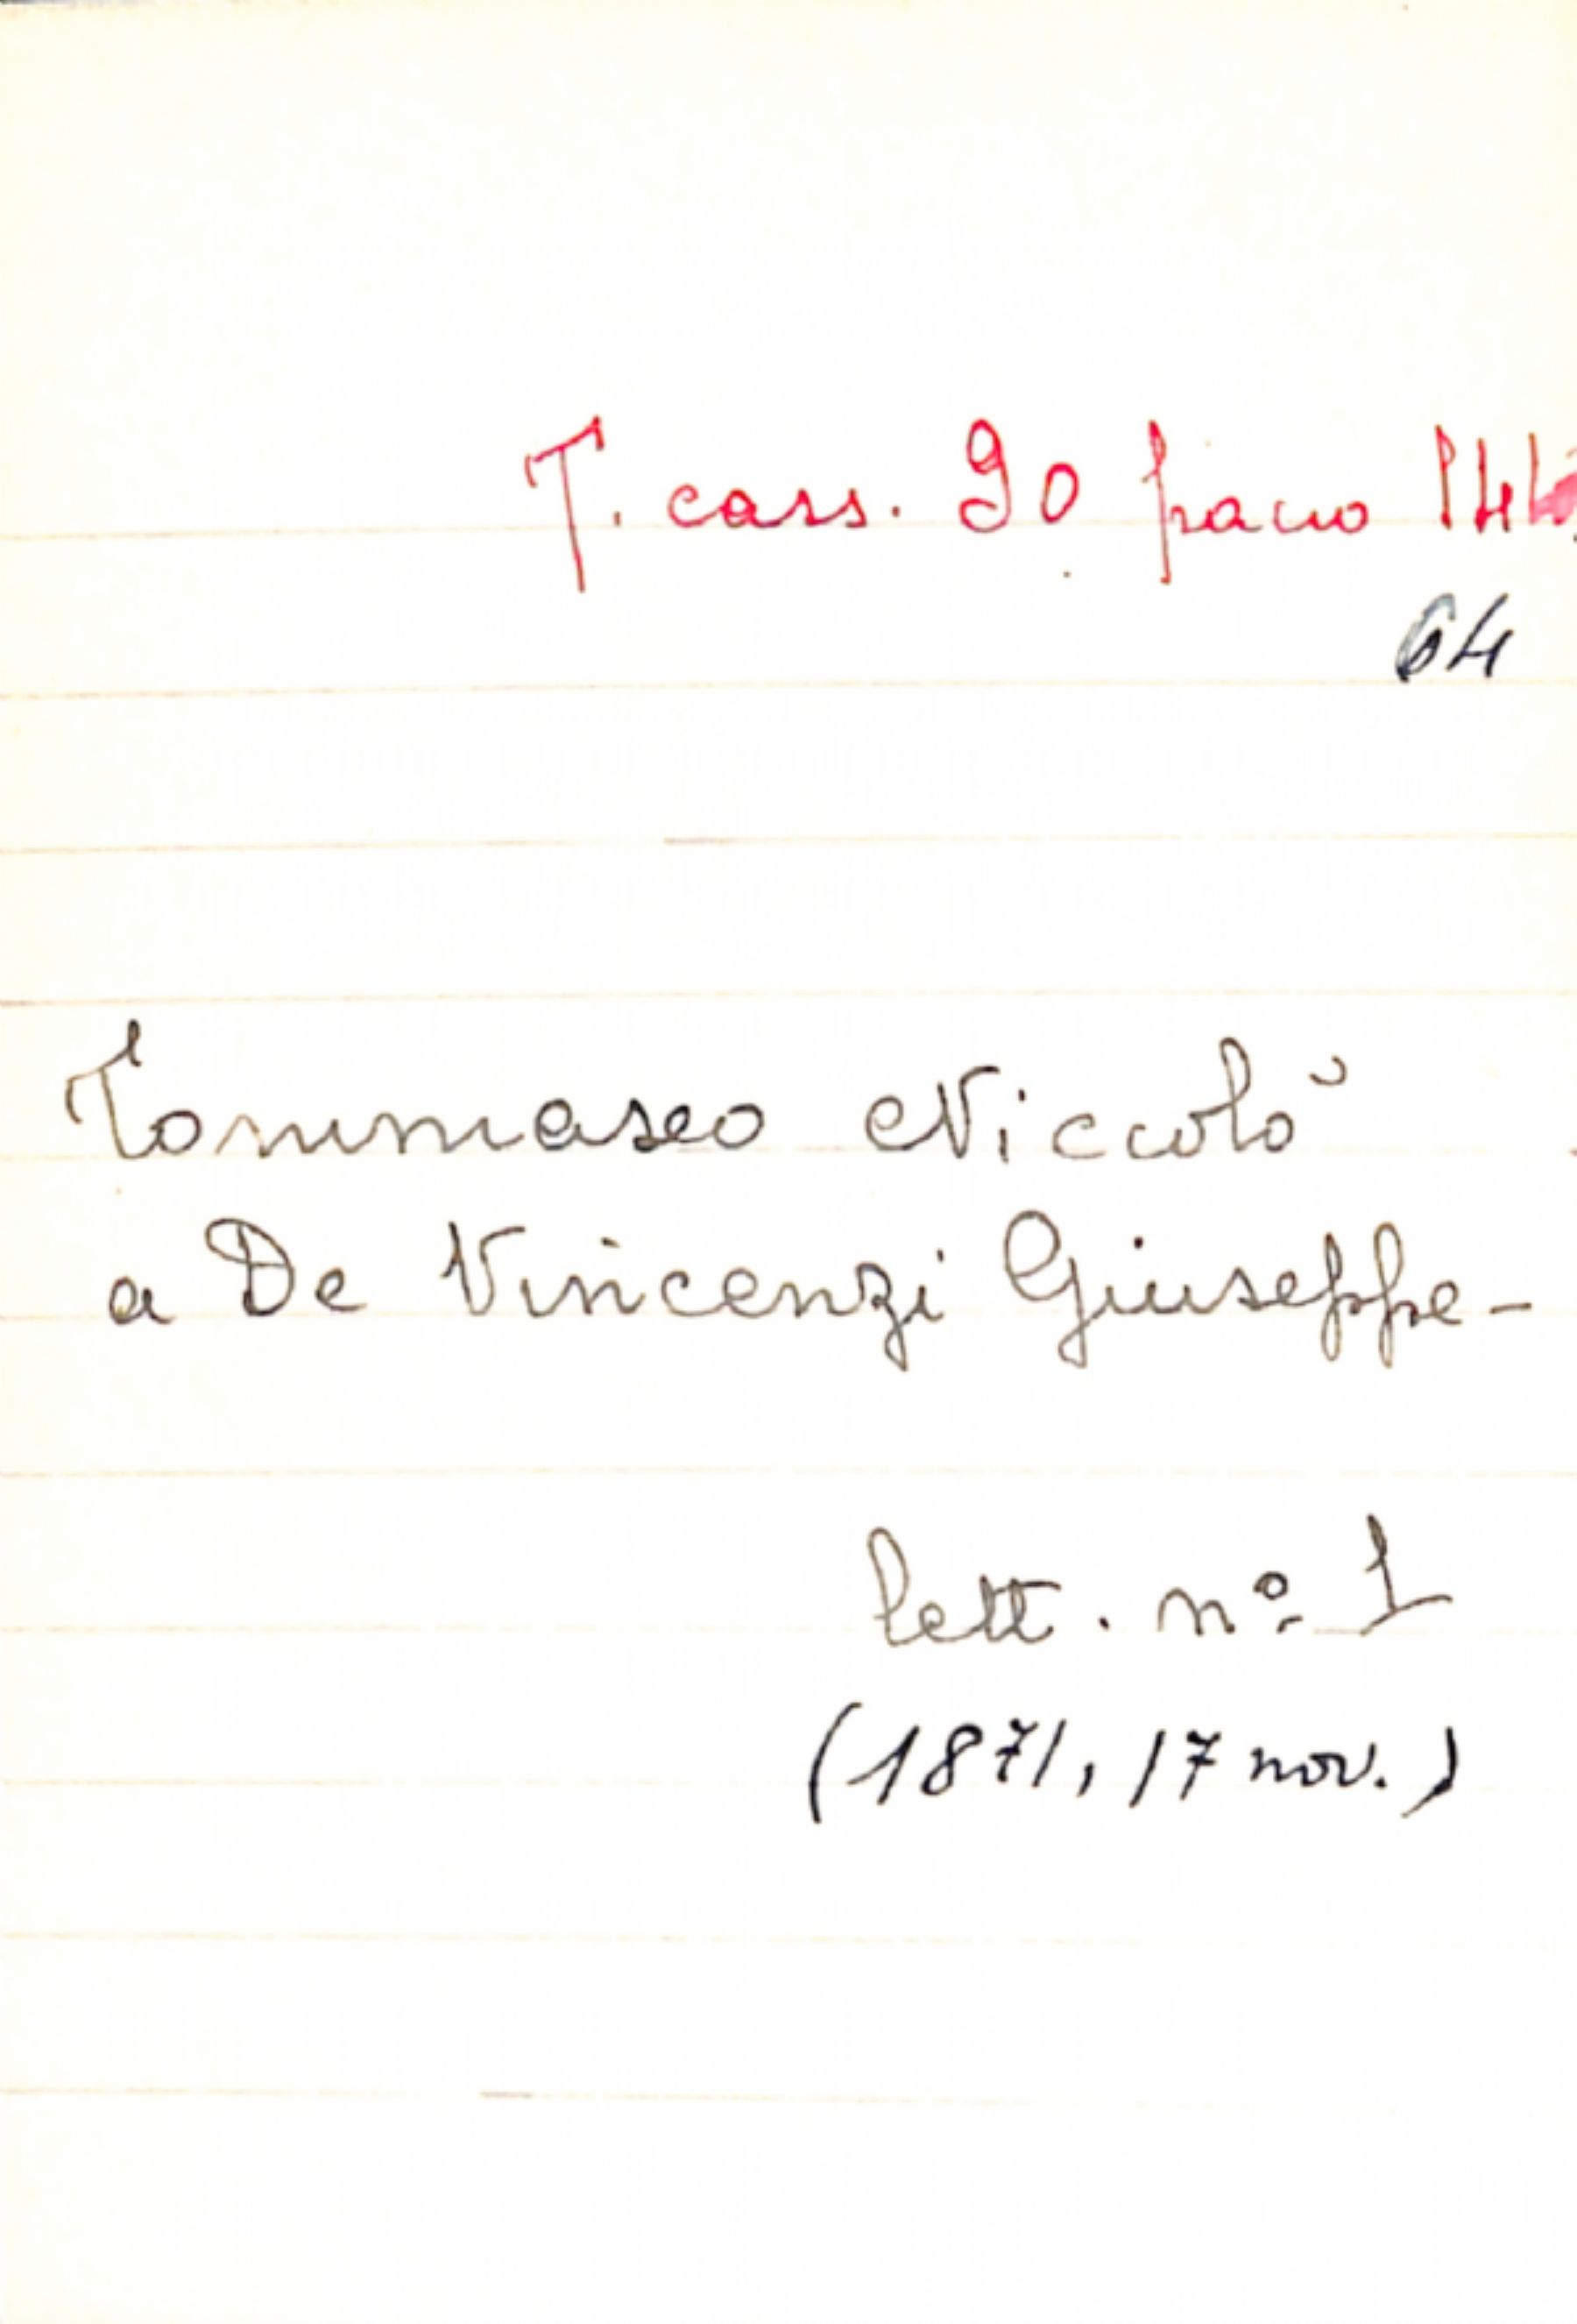 T. cass. 90 pacco 144
64
Tommaseo Niccolò
a De Vincenzi Giuseppe -
lett. nº 1
(1871, 17 nov.)